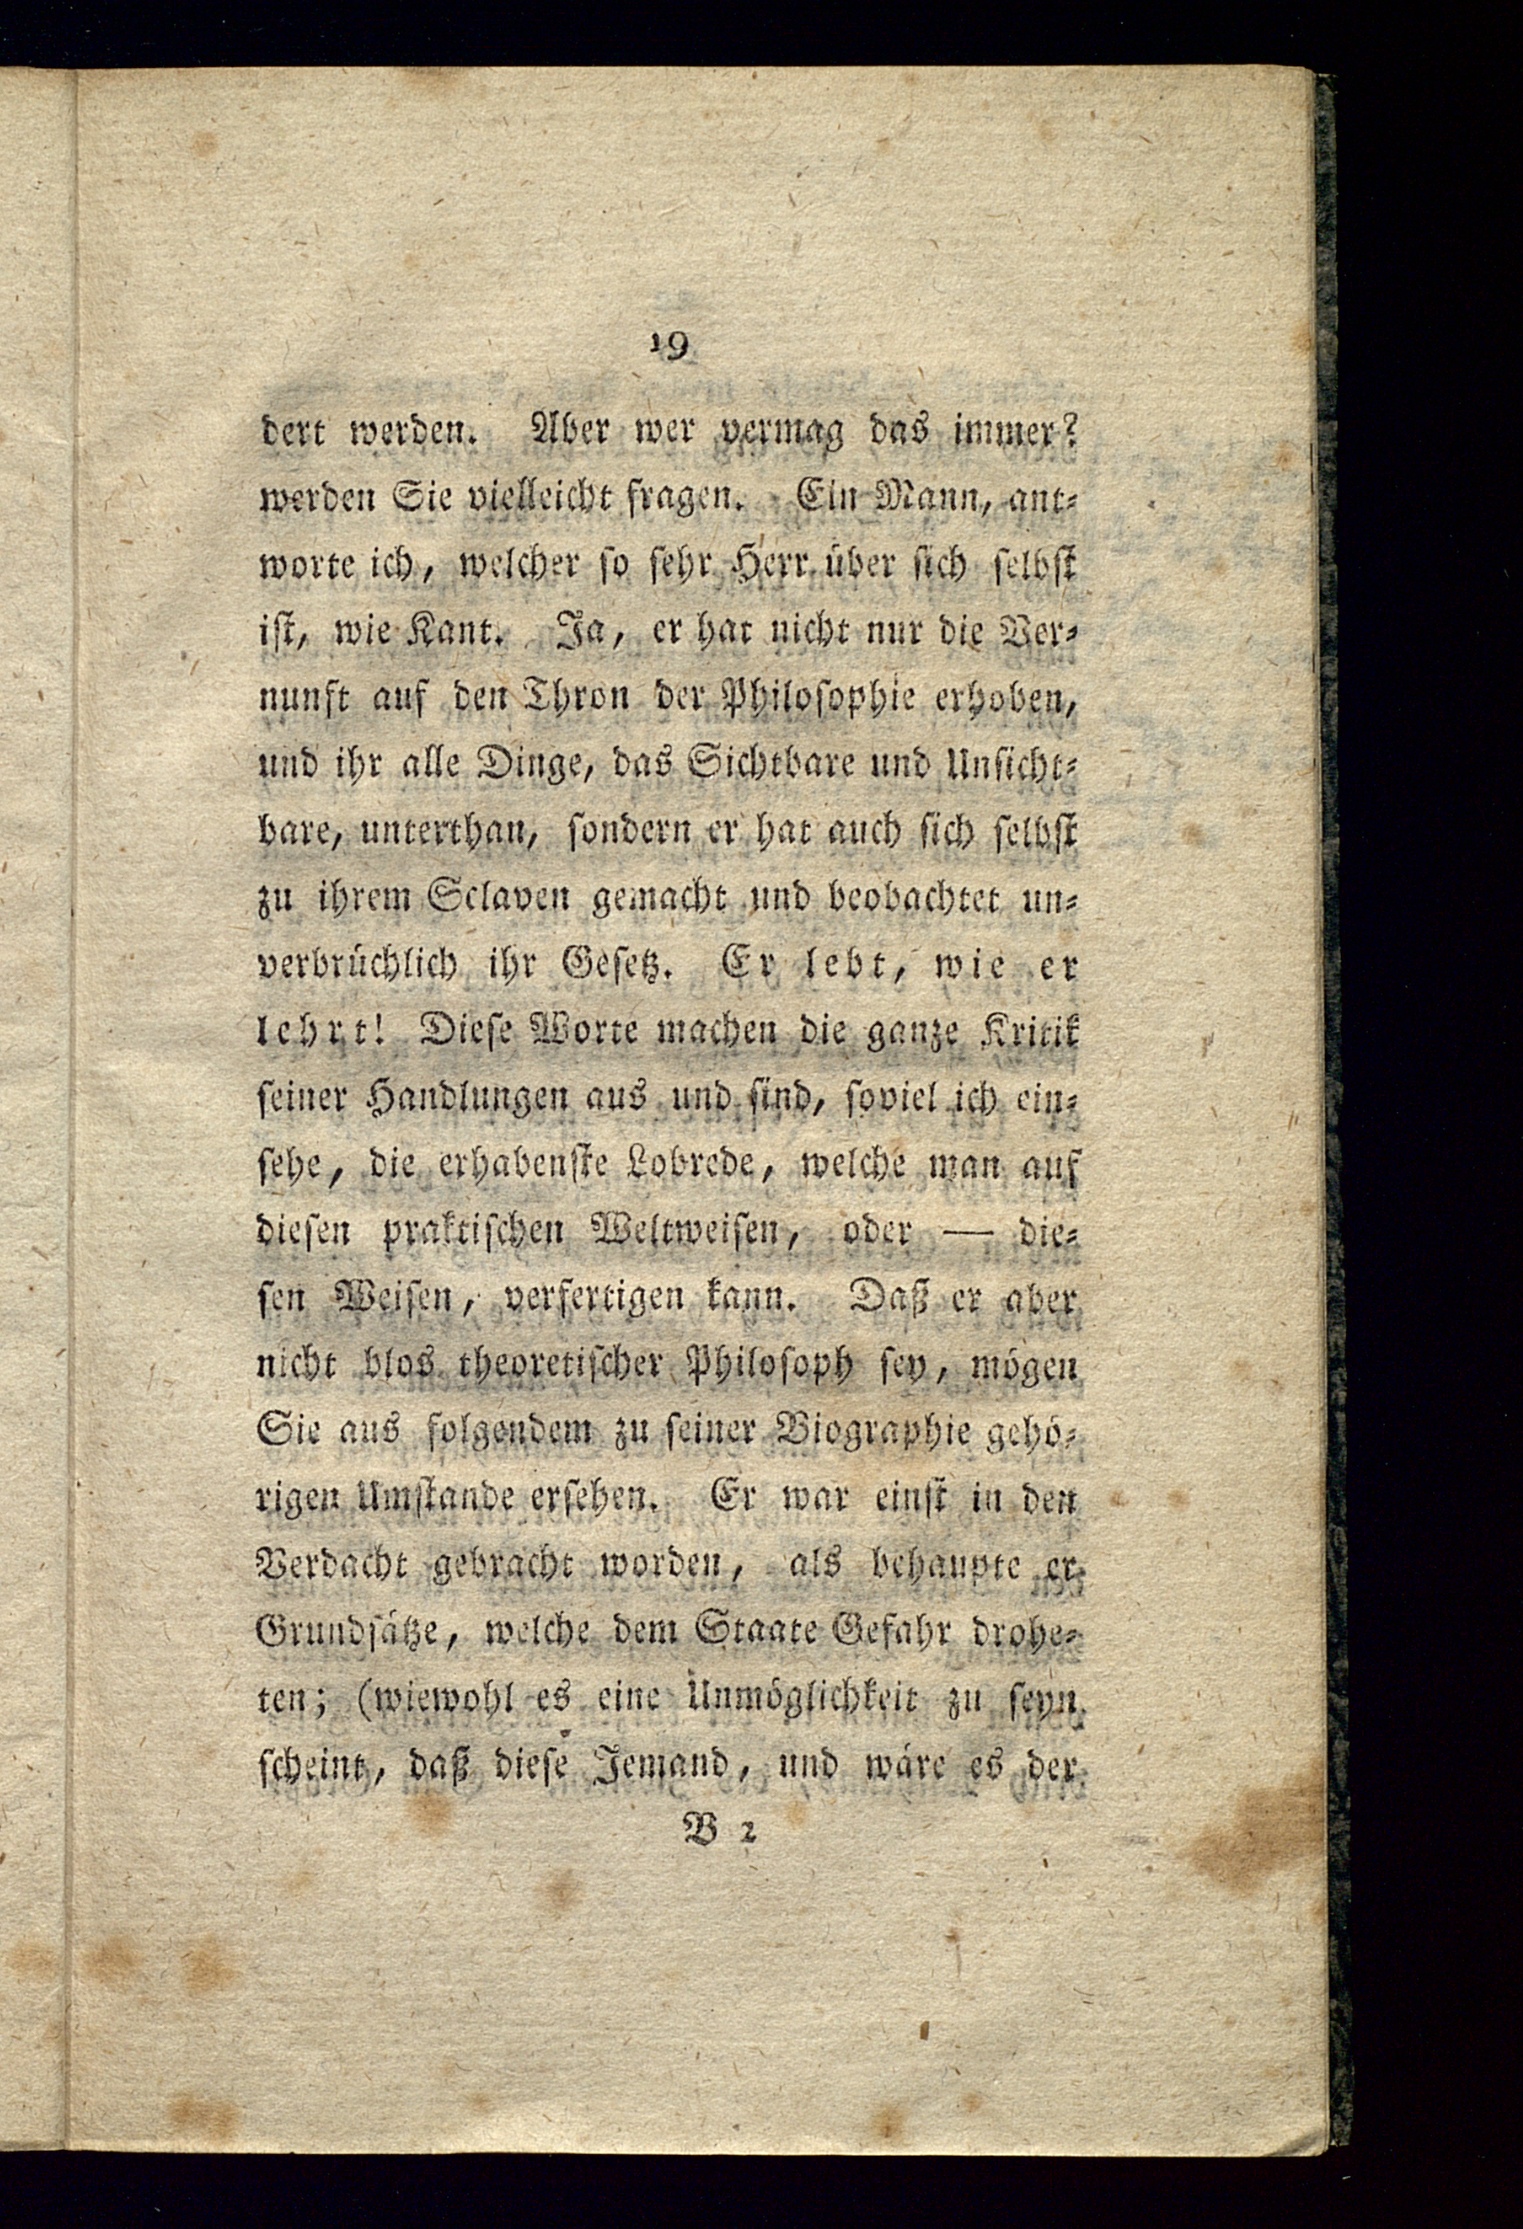 19
dert werden. Aber wer vermag das immer?
werden Sie vielleicht fragen. Ein Mann, ant⸗
worte ich, welcher ſo ſehr Herr über ſich ſelbſt
iſt, wie Kant. Ja, er hat nicht nur die Ver⸗
nunft auf den Thron der Philoſophie erhoben,
und ihr alle Dinge, das Sichtbare und Unſicht⸗
bare, unterthan, ſondern er hat auch ſich ſelbſt
zu ihrem Sclaven gemacht und beobachtet un⸗
verbrüchlich ihr Geſetz. Er lebt, wie er
lehrt! Dieſe Worte machen die ganze Kritik
ſeiner Handlungen aus und ſind, ſoviel ich ein⸗
ſehe, die erhabenſte Lobrede, welche man auf
dieſen praktiſchen Weltweiſen, oder — die⸗
ſen Weiſen, verfertigen kann. Daß er aber
nicht blos theoretiſcher Philoſoph ſey, mögen
Sie aus folgendem zu ſeiner Biographie gehö⸗
rigen Umſtande erſehen. Er war einſt in den
Verdacht gebracht worden, als behaupte er
Grundſätze, welche dem Staate Gefahr drohe⸗
ten; (wiewohl es eine Unmöglichkeit zu ſeyn
ſcheint, daß dieſe Jemand, und wäre es der
B 2